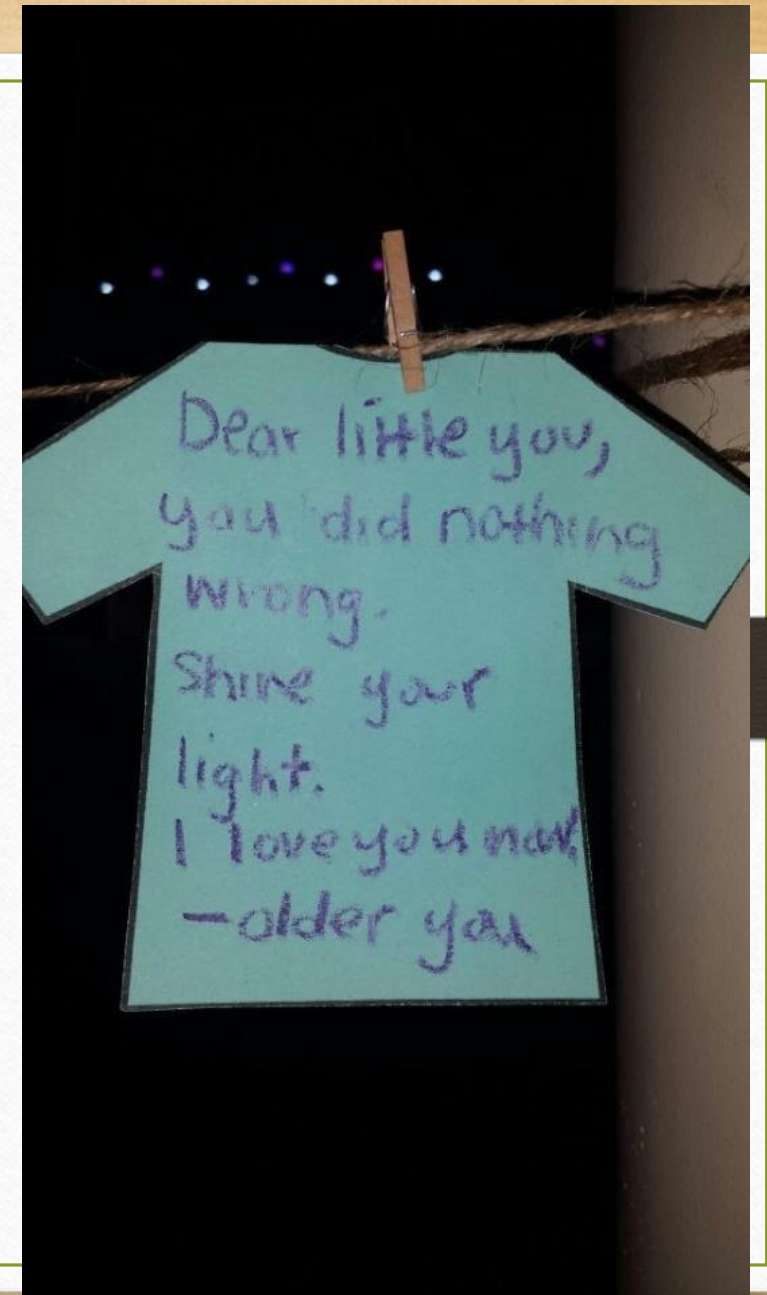 Dear little you,
you did nothing
wrong.
Shine your
light.
I love you now.
-older you